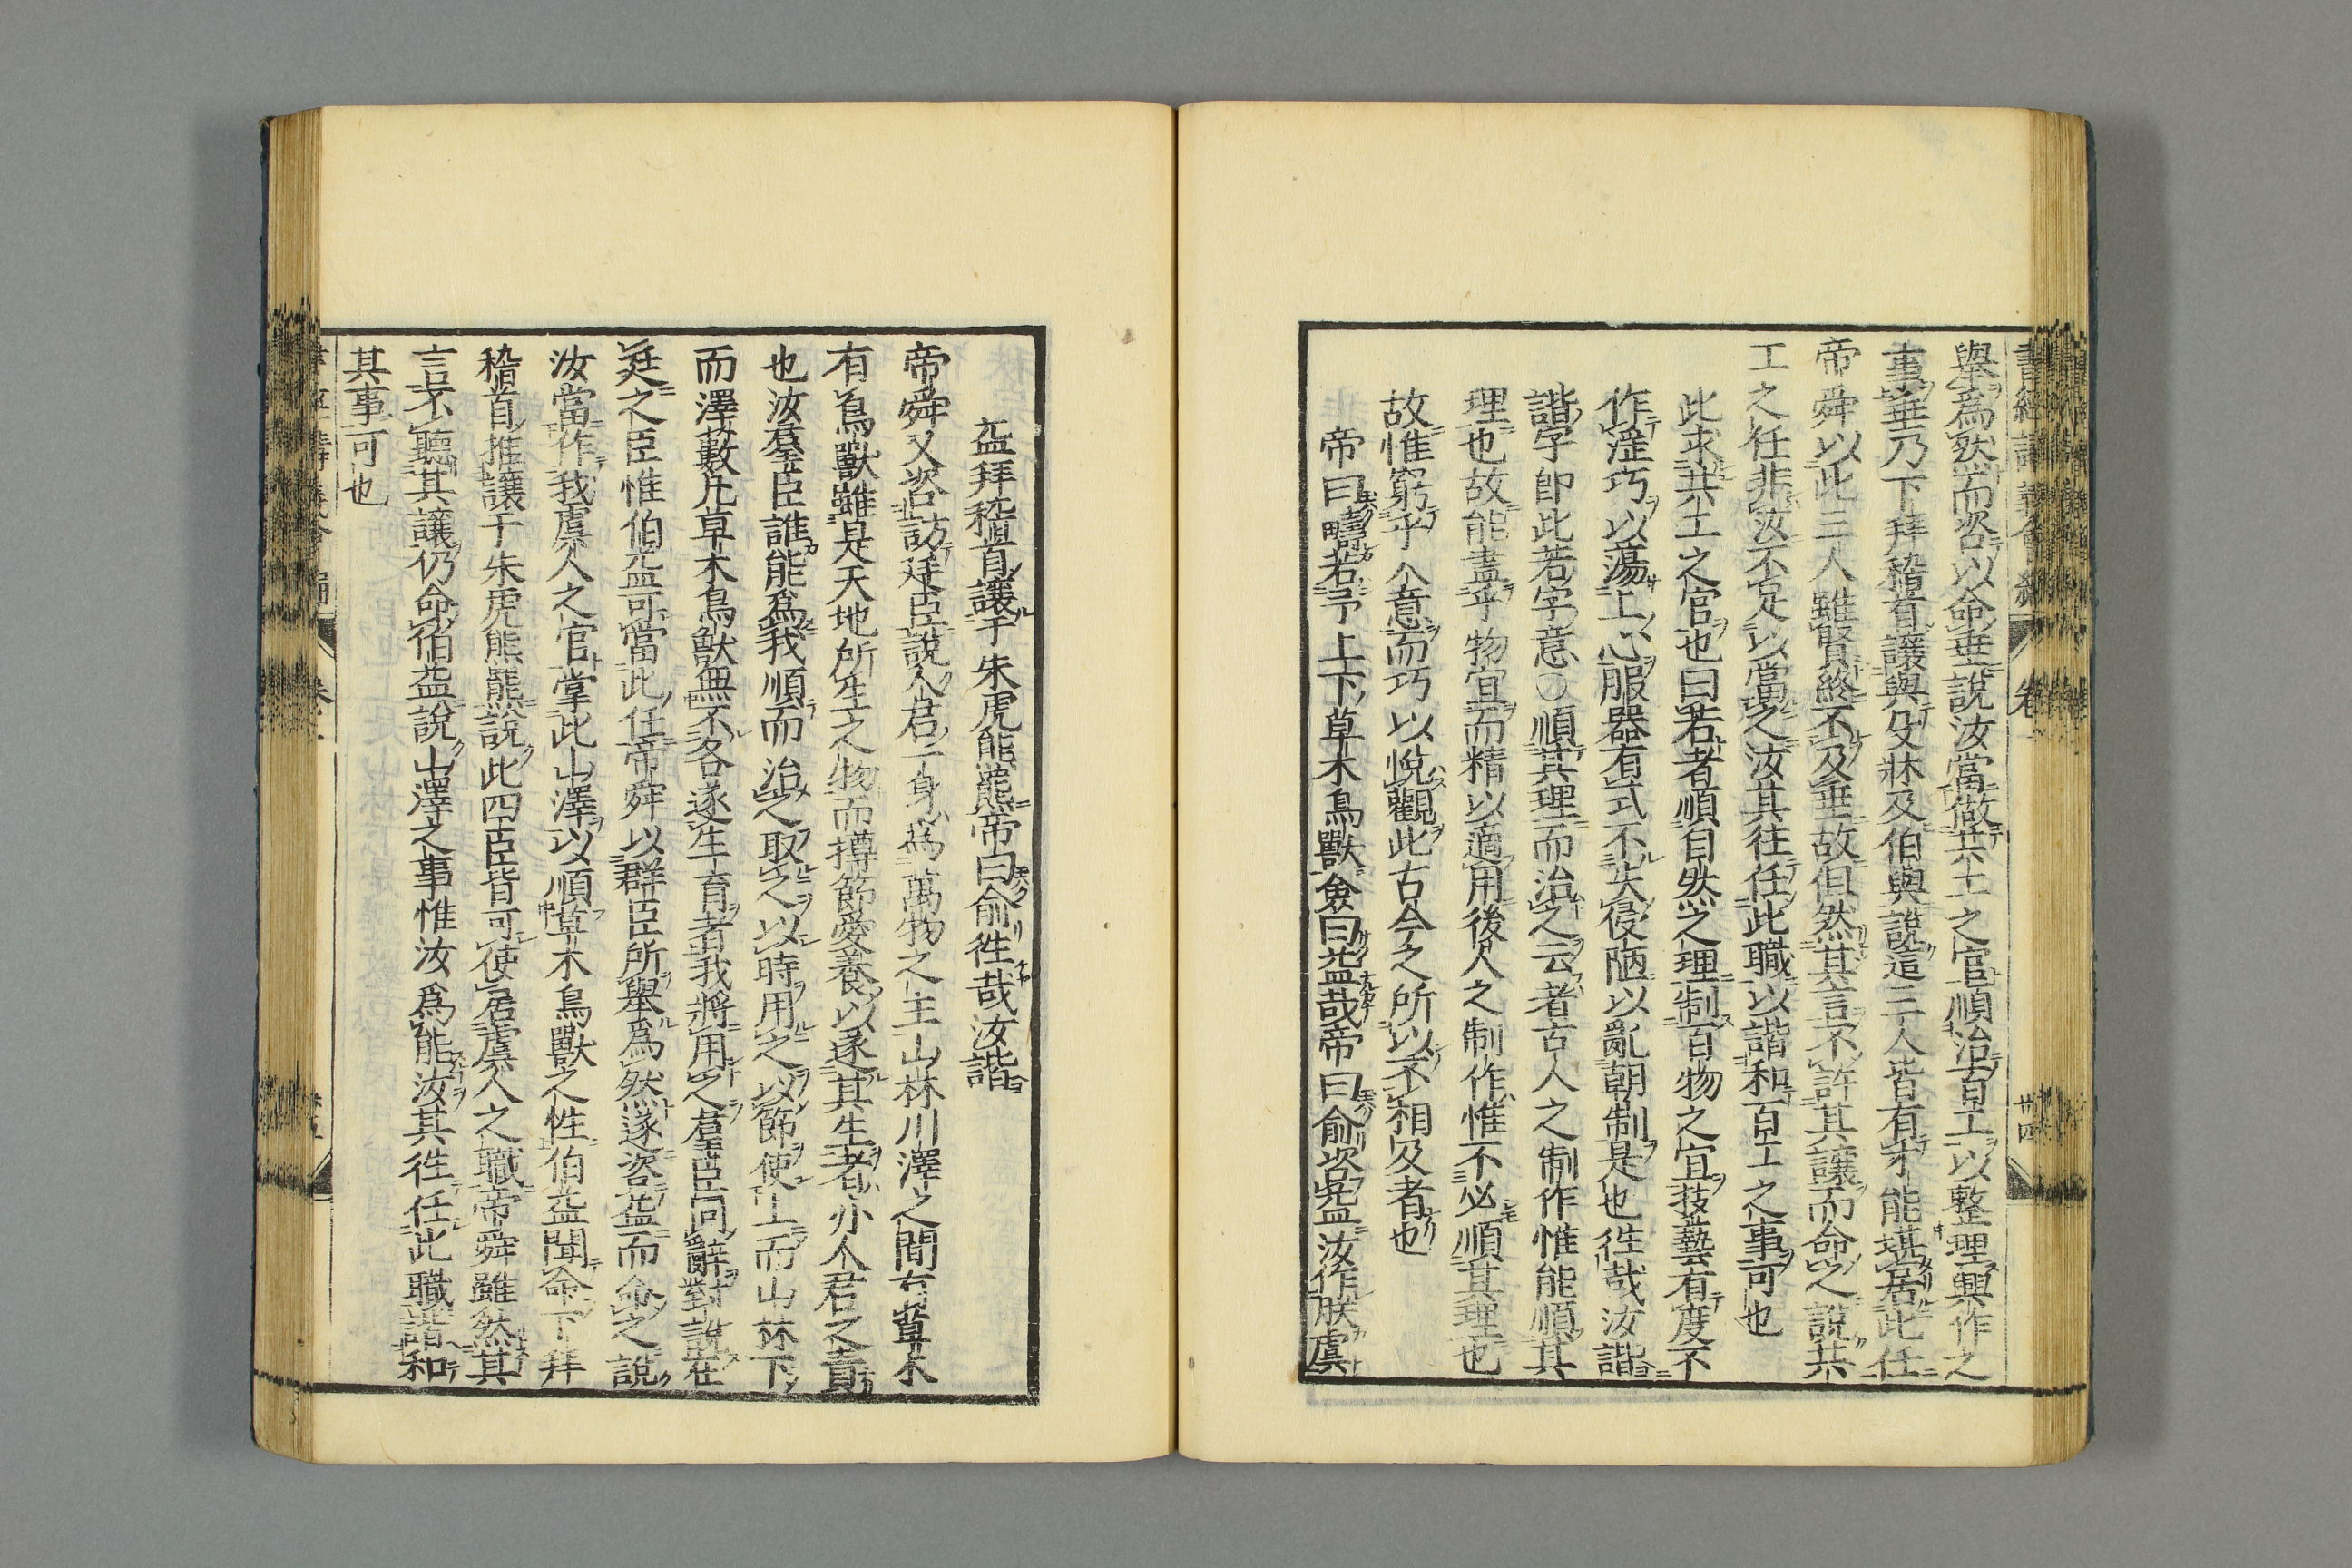 擧爲然而咨以命垂說汝當做共工之官順治百工以整理興作之
事垂乃下拜稽首讓與殳斨及伯與說這三人皆有才能堪居此任
帝舜以此三人雖賢終不及垂故但然其言不許其讓而命之說共
工之任非汝不足以當之汝其往任此職以諧和百工之事可也
此求共工之官也曰若者順自然之理制百物之宜技藝有度不
作淫巧以蕩上心服器有式不失侵陋以亂朝制是也徃哉汝諧
諧字卽此若字意〇順其理而治之云者古人之制作惟能順其
理也故能盡乎物宜而精以適用後人之制作惟不必順其理也
故惟窮乎人意而巧以悅觀此古今之所以不相及者也
帝曰疇若予上下草木鳥獸僉曰益哉帝曰俞咨益汝作朕虞
書經講義會編 卷 廿四
益拜稽首讓于朱虎熊羆帝曰俞徃哉汝諧
帝舜又咨訪廷臣說人君一身爲萬物之主山林川澤之間有草木
有鳥獸雖是天地所生之物而撙節愛養以遂其生者亦人君之責
也汝羣臣誰能爲我順而治之取之以時用之以節使上而山林下
而澤藪凡草木鳥獸無不各遂生育者我將用之羣臣同辭對說在
廷之臣惟伯益可當此任帝舜以群臣所擧爲然遂咨益而命之說
汝當作我虞人之官掌此山澤以順草木鳥獸之性伯益聞命下拜
稽首推讓于朱虎熊羆說此四臣皆可使居虞人之職帝舜雖然其
言不聽其讓仍命伯益說山澤之事惟汝爲能汝其徃任此職諧和
其事可也